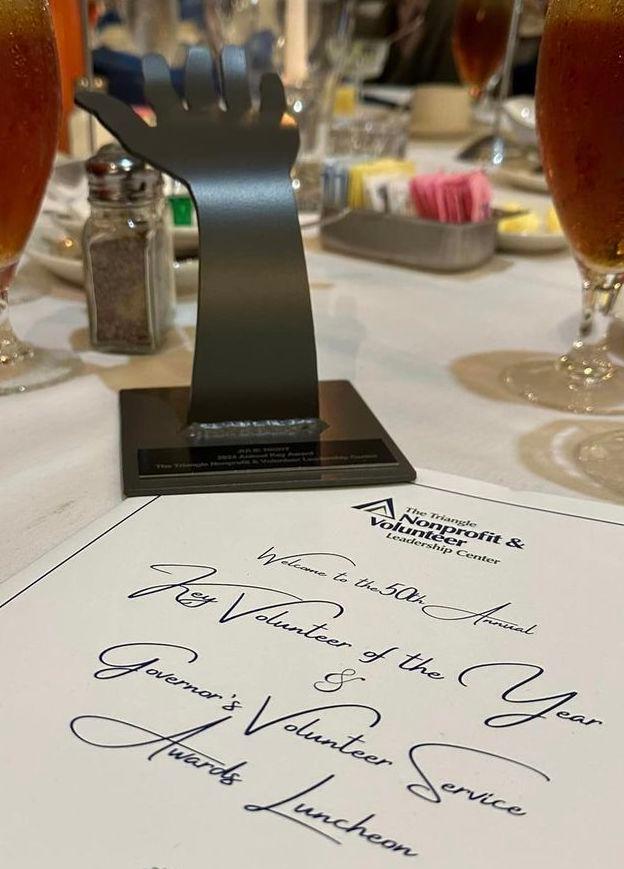 2024 Annual Key Award
The Triangle Nonprofit & Volunteer Leadership Center
The Triangle
Nonprofit &
Volunteer
Leadership Center
Welcome to the 50th Annual
Key Volunteer of the Year
&
Governor's Volunteer Service
Awards Luncheon